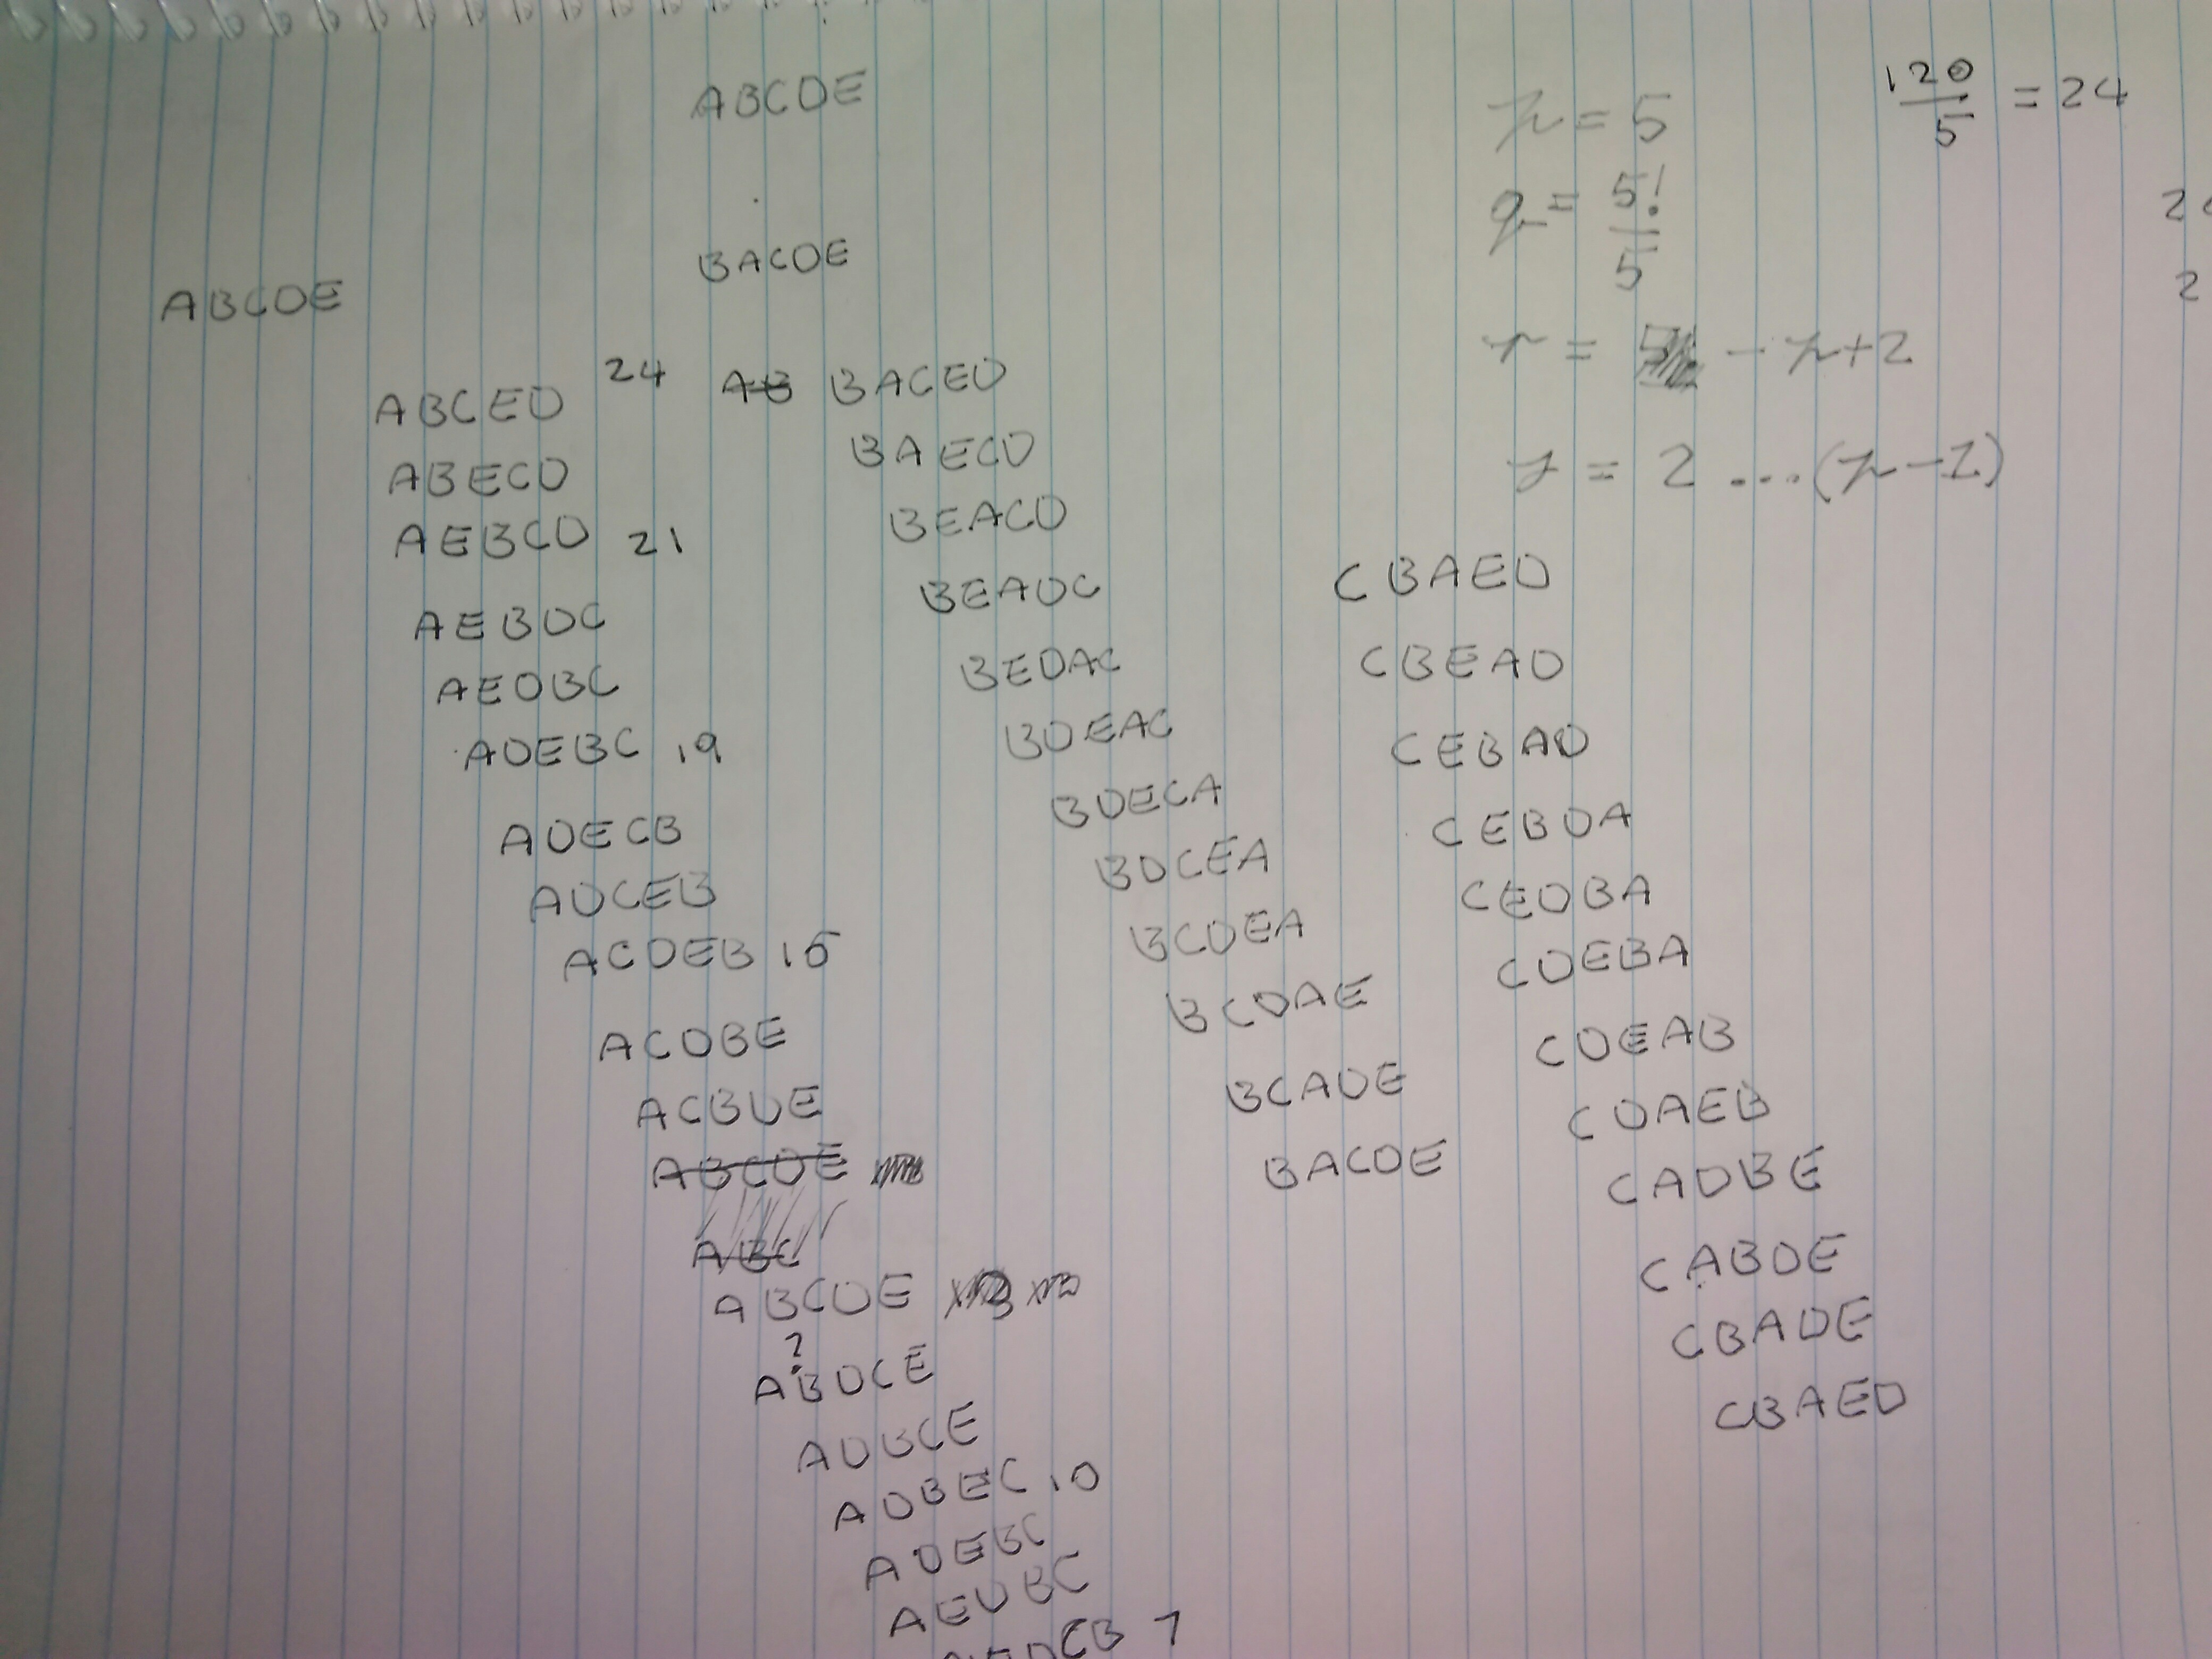 ABCDE
BACDE
ABCDE
ABCED 24
ABECD
AEBCD 21
AEBDC
AEDBC
ADEBC 19
ADECB
ADCEB
ACDEB 15
ACDBE
ACBDE
ABCDE
ABC
ABCDE
?
ABDCE
ADBCE
ADBEC 10
ADEBC
AEDBC
AEDCB 7
AB BACED
BAECD
BEACD
BEADC
BEDAC
BDEAC
BDECA
BDCEA
BCDEA
BCDAE
BCADE
BACDE
CBAED
CBEAD
CEBAD
CEBDA
CEDBA
CDEBA
CDEAB
CDAEB
CADBE
CABDE
CBADE
CBAED
n = 5
q = 5!
5
r = - n + 2
y = 2 ... (n - 1)
120
5
= 24
2